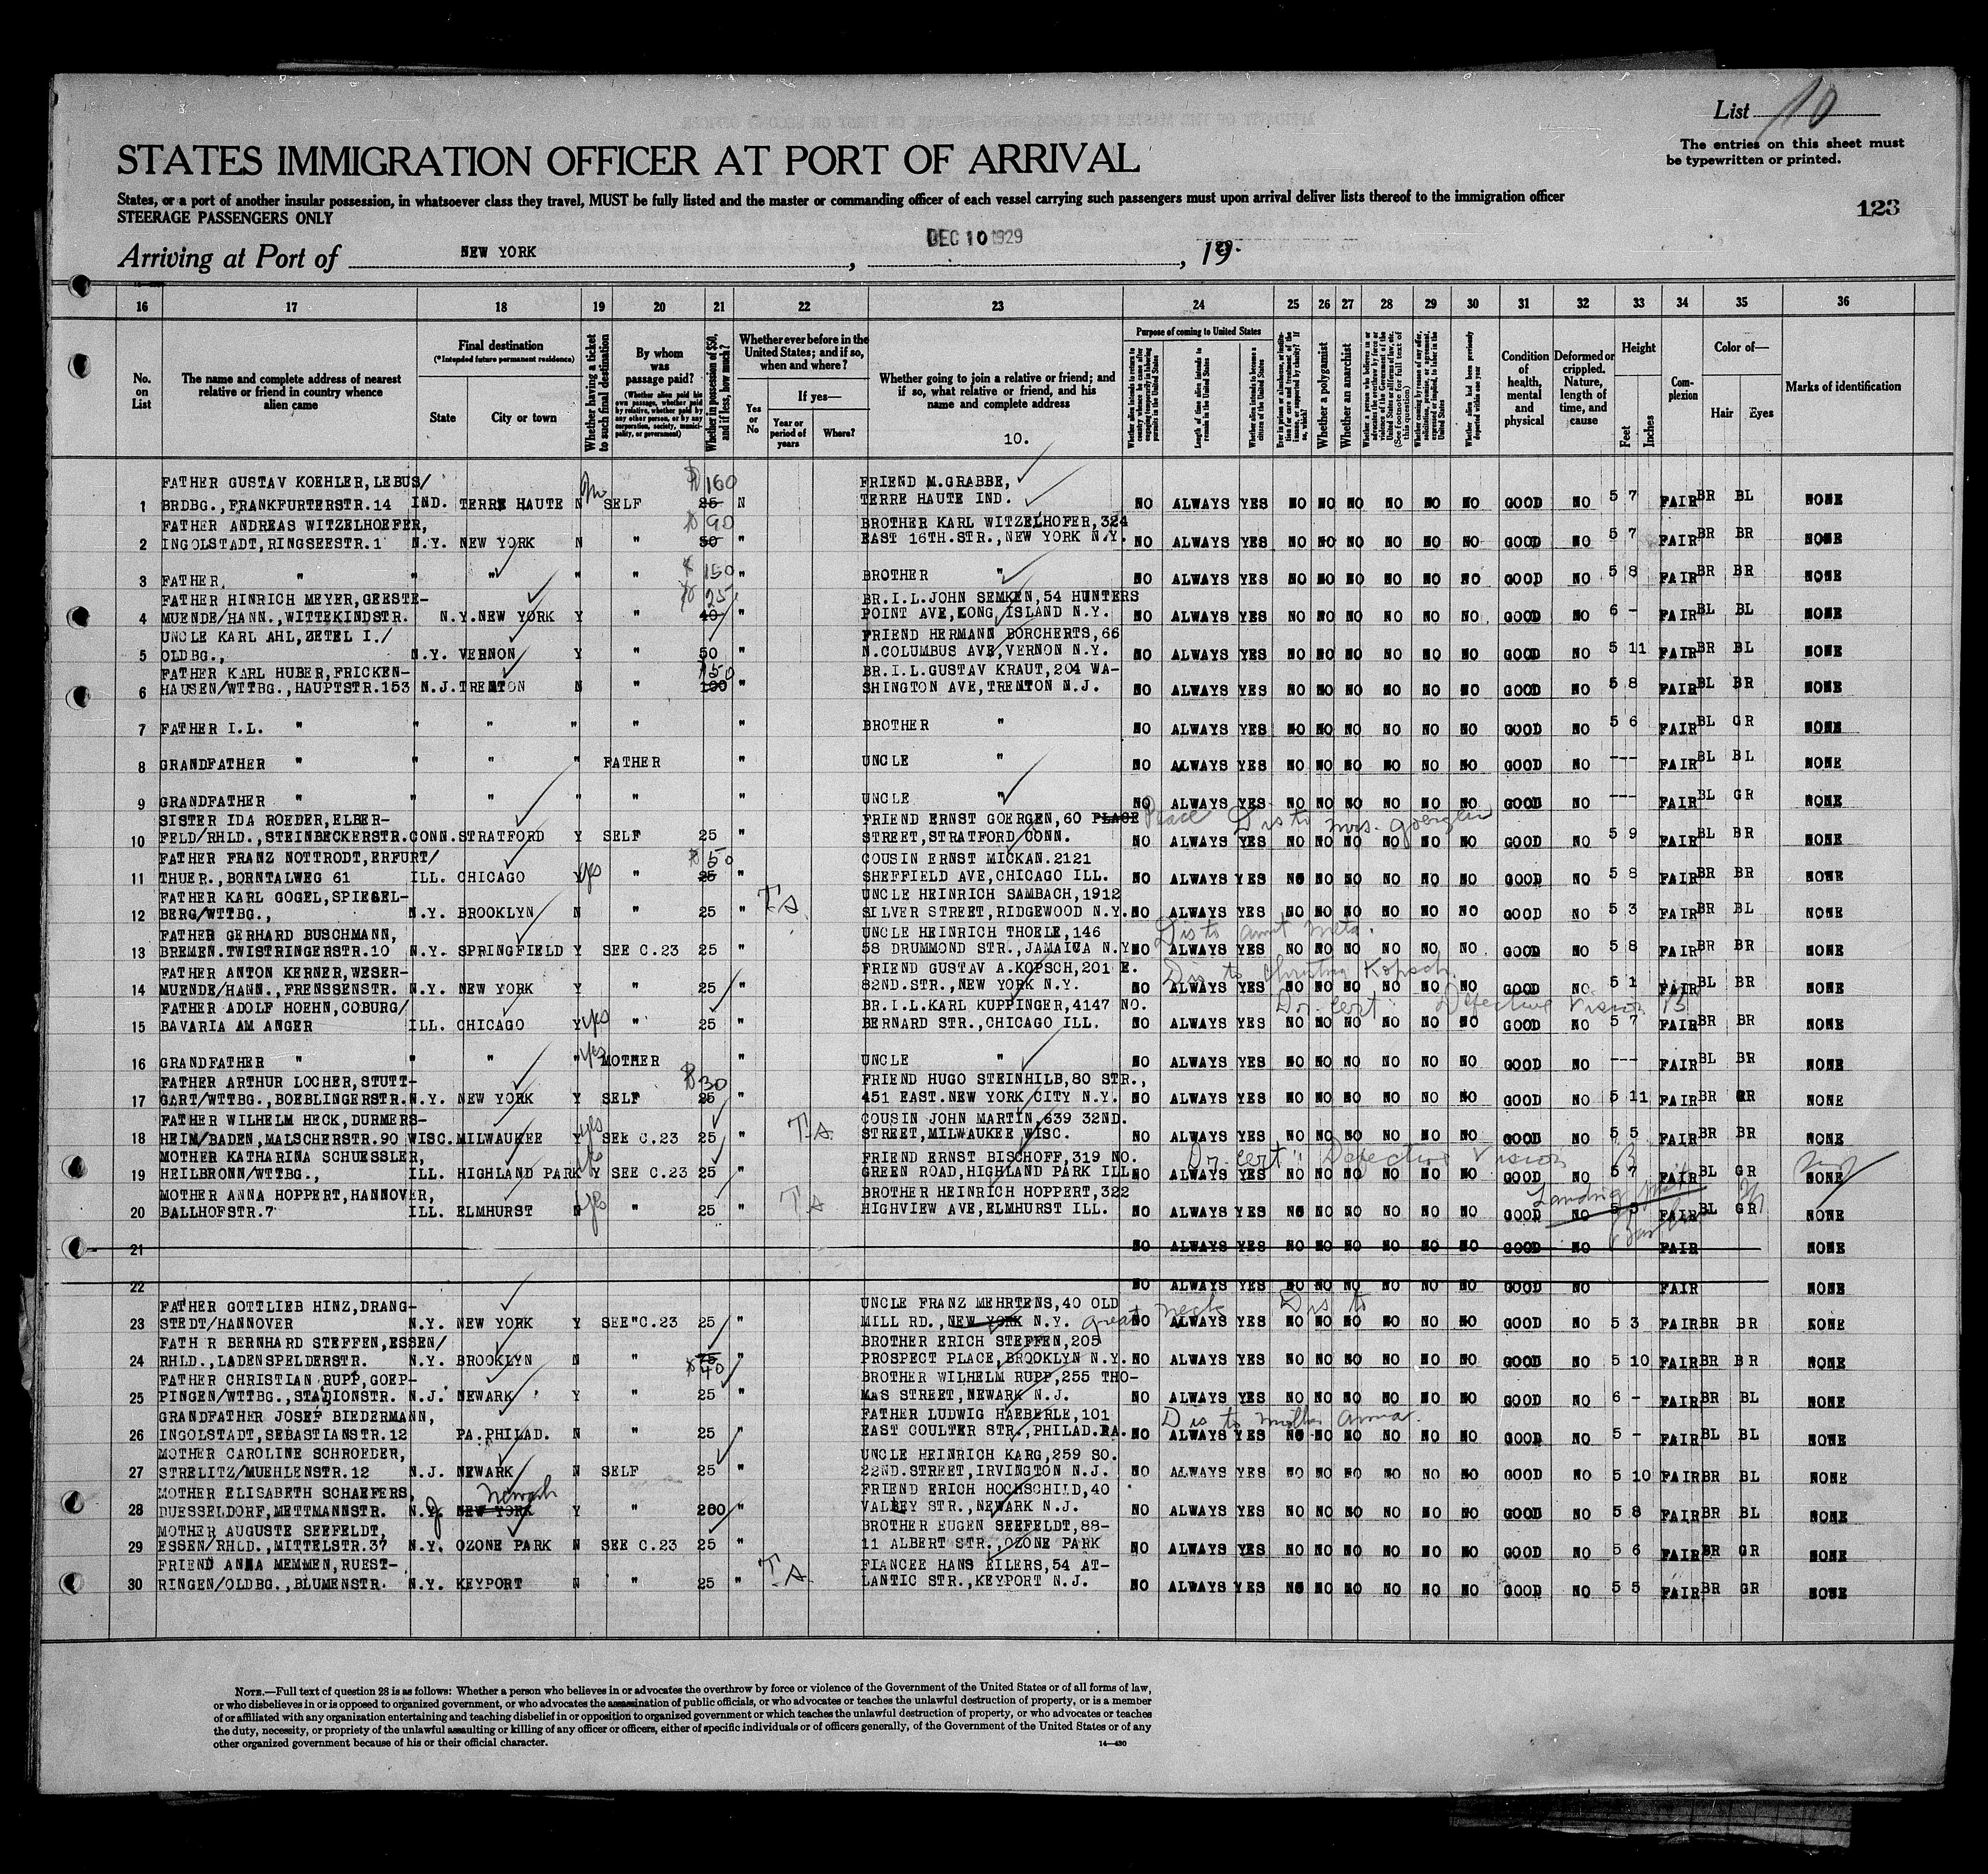 List 10
The entries on this sheet must
be typewritten or printed.
STATES IMMIGRATION OFFICER AT PORT OF ARRIVAL
States, or a port of another insular possession, in whatsoever class they travel, MUST be fully listed and the master or commanding officer of each vessel carrying such passengers must upon arrival deliver lists thereof to the immigration officer
STEERAGE PASSENGERS ONLY
123
Arriving at Port of NEW YORK, DEC 10 1929, 19
16 17 18 19 20 21 22 23 24 25 26 27 28 29 30 31 32 33 34 35 36
No. on List
The name and complete address of nearest relative or friend in country whence alien came
Final destination
(*Intended future permanent residence)
State
City or town
Whether having a ticket to such final destination
By whom was passage paid?
(Whether alien paid his own passage, whether paid by relative, whether paid by any other person, or by any corporation, society, municipality, or government)
Whether in possession of $50, and if less, how much?
Whether ever before in the United States; and if so, when and where?
Yes or No
If yes—
Year or period of years
Where?
Whether going to join a relative or friend; and if so, what relative or friend, and his name and complete address
10.
Purpose of coming to United States
Length of time alien intends to remain in the United States
Whether alien intends to become a citizen of the United States
Whether a polygamist
Whether an anarchist
(See footnote for full text of this question)
Condition of health, mental and physical
Deformed or crippled. Nature, length of time, and cause
Height
Feet
Inches
Complexion
Color of—
Hair
Eyes
Marks of identification
FATHER GUSTAV KOEHLER, LEBUS/ $160 FRIEND M.GRABBE,
1 BRDBG.,FRANKFURTERSTR.14 IND. TERRE HAUTE N SELF 25 N TERRE HAUTE IND. NO ALWAYS YES NO NO NO NO NO NO GOOD NO 5 7 FAIR BR BL NONE
FATHER ANDREAS WITZELHOEFER, $90 BROTHER KARL WITZELHOFER,324
2 INGOLSTADT,RINGSEESTR.1 N.Y. NEW YORK N " 50 " EAST 16TH.STR.,NEW YORK N.Y. NO ALWAYS YES NO NO NO NO NO NO GOOD NO 5 7 FAIR BR BR NONE
3 FATHER " " " " " $150 " BROTHER " NO ALWAYS YES NO NO NO NO NO NO GOOD NO 5 8 FAIR BR BR NONE
FATHER HINRICH MEYER,GEESTE- $25 BR.I.L.JOHN SEMKEN,54 HUNTERS
4 MUENDE/HANN.,WITTEKINDSTR. N.Y.NEW YORK Y " 40 " POINT AVE,LONG ISLAND N.Y. NO ALWAYS YES NO NO NO NO NO NO GOOD NO 6 - FAIR BL BL NONE
UNCLE KARL AHL,ZETEL I./ FRIEND HERMANN BORCHERTS,66
5 OLDBG., N.Y. VERNON Y " 50 " N.COLUMBUS AVE,VERNON N.Y. NO ALWAYS YES NO NO NO NO NO NO GOOD NO 5 11 FAIR BR BL NONE
FATHER KARL HUBER,FRICKEN- 150 BR.I.L.GUSTAV KRAUT,204 WA-
6 HAUSEN/WTTBG.,HAUPTSTR.153 N.J.TRENTON N " 100 " SHINGTON AVE,TRENTON N.J. NO ALWAYS YES NO NO NO NO NO NO GOOD NO 5 8 FAIR BL BR NONE
7 FATHER I.L. " " " " " " BROTHER " NO ALWAYS YES NO NO NO NO NO NO GOOD NO 5 6 FAIR BL GR NONE
8 GRANDFATHER " " " " FATHER " UNCLE " NO ALWAYS YES NO NO NO NO NO NO GOOD NO --- FAIR BL BL NONE
9 GRANDFATHER " " " " " " UNCLE " NO ALWAYS YES NO NO NO NO NO NO GOOD NO --- FAIR BL GR NONE
SISTER IDA ROEDER,ELBER- FRIEND ERNST GOERGEN,60 PLACE Peace Dis to Mrs. Goergen
10 FELD/RHLD.,STEINBECKERSTR. CONN.STRATFORD Y SELF 25 " STREET,STRATFORD CONN. NO ALWAYS YES NO NO NO NO NO NO GOOD NO 5 9 FAIR BL BR NONE
FATHER FRANZ NOTTRODT,ERFURT/ $50 COUSIN ERNST MICKAN.2121
11 THUER.,BORNTALWEG 61 ILL. CHICAGO Y yes " 25 " SHEFFIELD AVE,CHICAGO ILL. NO ALWAYS YES NO NO NO NO NO NO GOOD NO 5 8 FAIR BR BR NONE
FATHER KARL GOGEL,SPIEGEL- UNCLE HEINRICH SAMBACH,1912
12 BERG/WTTBG., N.Y. BROOKLYN N " 25 " T.A. SILVER STREET,RIDGEWOOD N.Y. NO ALWAYS YES NO NO NO NO NO NO GOOD NO 5 3 FAIR BR BL NONE
FATHER GERHARD BUSCHMANN, UNCLE HEINRICH THOELE,146 Dis to aunt Meta.
13 BREMEN.TWISTRINGERSTR.10 N.Y. SPRINGFIELD Y SEE C.23 25 " 58 DRUMMOND STR.,JAMAICA N.Y. NO ALWAYS YES NO NO NO NO NO NO GOOD NO 5 8 FAIR BR BR NONE
FATHER ANTON KERNER,WESER- FRIEND GUSTAV A.KOPSCH,201 E. Dis to Christina Kopsch.
14 MUENDE/HANN.,FRENSSENSTR. N.Y. NEW YORK Y " 25 " 82ND.STR.,NEW YORK N.Y. NO ALWAYS YES NO NO NO NO NO NO GOOD NO 5 1 FAIR BL BR NONE
FATHER ADOLF HOEHN,COBURG/ BR.I.L.KARL KUPPINGER,4147 NO. Dr. Cert: Defective Vision B
15 BAVARIA AM ANGER ILL. CHICAGO Y yes " 25 " BERNARD STR.,CHICAGO ILL. NO ALWAYS YES NO NO NO NO NO NO GOOD NO 5 7 FAIR BR BR NONE
16 GRANDFATHER " " " " yes MOTHER " UNCLE " NO ALWAYS YES NO NO NO NO NO NO GOOD NO --- FAIR BL BR NONE
FATHER ARTHUR LOCHER,STUTT- $30 FRIEND HUGO STEINHILB,80 STR.,
17 GART/WTTBG.,BOEBLINGERSTR. N.Y. NEW YORK Y SELF 25 " 451 EAST.NEW YORK CITY N.Y. NO ALWAYS YES NO NO NO NO NO NO GOOD NO 5 11 FAIR BR GR NONE
FATHER WILHELM HECK,DURMERS- COUSIN JOHN MARTIN,639 32ND.
18 HEIM/BADEN,MALSCHERSTR.90 WISC.MILWAUKEE Y yes SEE C.23 25 " T.A. STREET,MILWAUKEE WISC. NO ALWAYS YES NO NO NO NO NO NO GOOD NO 5 5 FAIR BR BR NONE
MOTHER KATHARINA SCHUESSLER, FRIEND ERNST BISCHOFF,319 NO. Dr. Cert: Defective Vision B
19 HEILBRONN/WTTBG., ILL. HIGHLAND PARK Y SEE C.23 25 " GREEN ROAD,HIGHLAND PARK ILL. NO ALWAYS YES NO NO NO NO NO NO GOOD NO 5 7 FAIR BL GR NONE
MOTHER ANNA HOPPERT,HANNOVER, BROTHER HEINRICH HOPPERT,322 Landing
20 BALLHOFSTR.7 ILL. ELMHURST N yes " 25 " T.A. HIGHVIEW AVE,ELMHURST ILL. NO ALWAYS YES NO NO NO NO NO NO GOOD NO 5 5 FAIR BL GR NONE
21 NO ALWAYS YES NO NO NO NO NO NO GOOD NO FAIR NONE
22 NO ALWAYS YES NO NO NO NO NO NO GOOD NO FAIR NONE
FATHER GOTTLIEB HINZ,DRANG- UNCLE FRANZ MEHRTENS,40 OLD Dis to
23 STEDT/HANNOVER N.Y. NEW YORK Y SEE"C.23 25 " MILL RD.,NEW YORK N.Y. Great Neck NO ALWAYS YES NO NO NO NO NO NO GOOD NO 5 3 FAIR BR BR NONE
FATH R BERNHARD STEFFEN,ESSEN/ BROTHER ERICH STEFFEN,205
24 RHLD.,LADENSPELDERSTR. N.Y. BROOKLYN N " 25 $40 " PROSPECT PLACE,BROOKLYN N.Y. NO ALWAYS YES NO NO NO NO NO NO GOOD NO 5 10 FAIR BR BR NONE
FATHER CHRISTIAN RUPP,GOEP- BROTHER WILHELM RUPP,255 THO-
25 PINGEN/WTTBG.,STADIONSTR. N.J. NEWARK Y " 25 " MAS STREET,NEWARK N.J. NO ALWAYS YES NO NO NO NO NO NO GOOD NO 6 - FAIR BR BL NONE
GRANDFATHER JOSEF BIEDERMANN, FATHER LUDWIG HAEBERLE,101 Dis to mother Anna.
26 INGOLSTADT,SEBASTIANSTR.12 PA.PHILAD. N " 25 " EAST COULTER STR.,PHILAD.PA. NO ALWAYS YES NO NO NO NO NO NO GOOD NO 5 - FAIR BL BL NONE
MOTHER CAROLINE SCHROEDER, UNCLE HEINRICH KARG,259 SO.
27 STRELITZ/MUEHLENSTR.12 N.J. NEWARK N SELF 25 " 22ND.STREET,IRVINGTON N.J. NO ALWAYS YES NO NO NO NO NO NO GOOD NO 5 10 FAIR BR BL NONE
MOTHER ELISABETH SCHAEFERS, Newark FRIEND ERICH HOCHSCHILD,40
28 DUESSELDORF,METTMANNSTR. N.J. NEW YORK Y " 200 " VALLEY STR.,NEWARK N.J. NO ALWAYS YES NO NO NO NO NO NO GOOD NO 5 8 FAIR BR BL NONE
MOTHER AUGUSTE SEEFELDT, BROTHER EUGEN SEEFELDT,88-
29 ESSEN/RHLD.,MITTELSTR.37 N.Y. OZONE PARK N SEE C.23 25 " 11 ALBERT STR.,OZONE PARK NO ALWAYS YES NO NO NO NO NO NO GOOD NO 5 6 FAIR BR GR NONE
FRIEND ANNA MEMMEN,RUEST- FIANCEE HANS EILERS,54 AT-
30 RINGEN/OLDBG.,BLUMENSTR. N.Y. KEYPORT N " 25 " T.A. LANTIC STR.,KEYPORT N.J. NO ALWAYS YES NO NO NO NO NO NO GOOD NO 5 5 FAIR BR GR NONE
NOTE.—Full text of question 28 is as follows: Whether a person who believes in or advocates the overthrow by force or violence of the Government of the United States or of all forms of law,
or who disbelieves in or is opposed to organized government, or who advocates the assassination of public officials, or who advocates or teaches the unlawful destruction of property, or is a member
of or affiliated with any organization entertaining and teaching disbelief in or opposition to organized government or which teaches the unlawful destruction of property, or who advocates or teaches
the duty, necessity, or propriety of the unlawful assaulting or killing of any officer or officers, either of specific individuals or of officers generally, of the Government of the United States or of any
other organized government because of his or their official character.
14—430